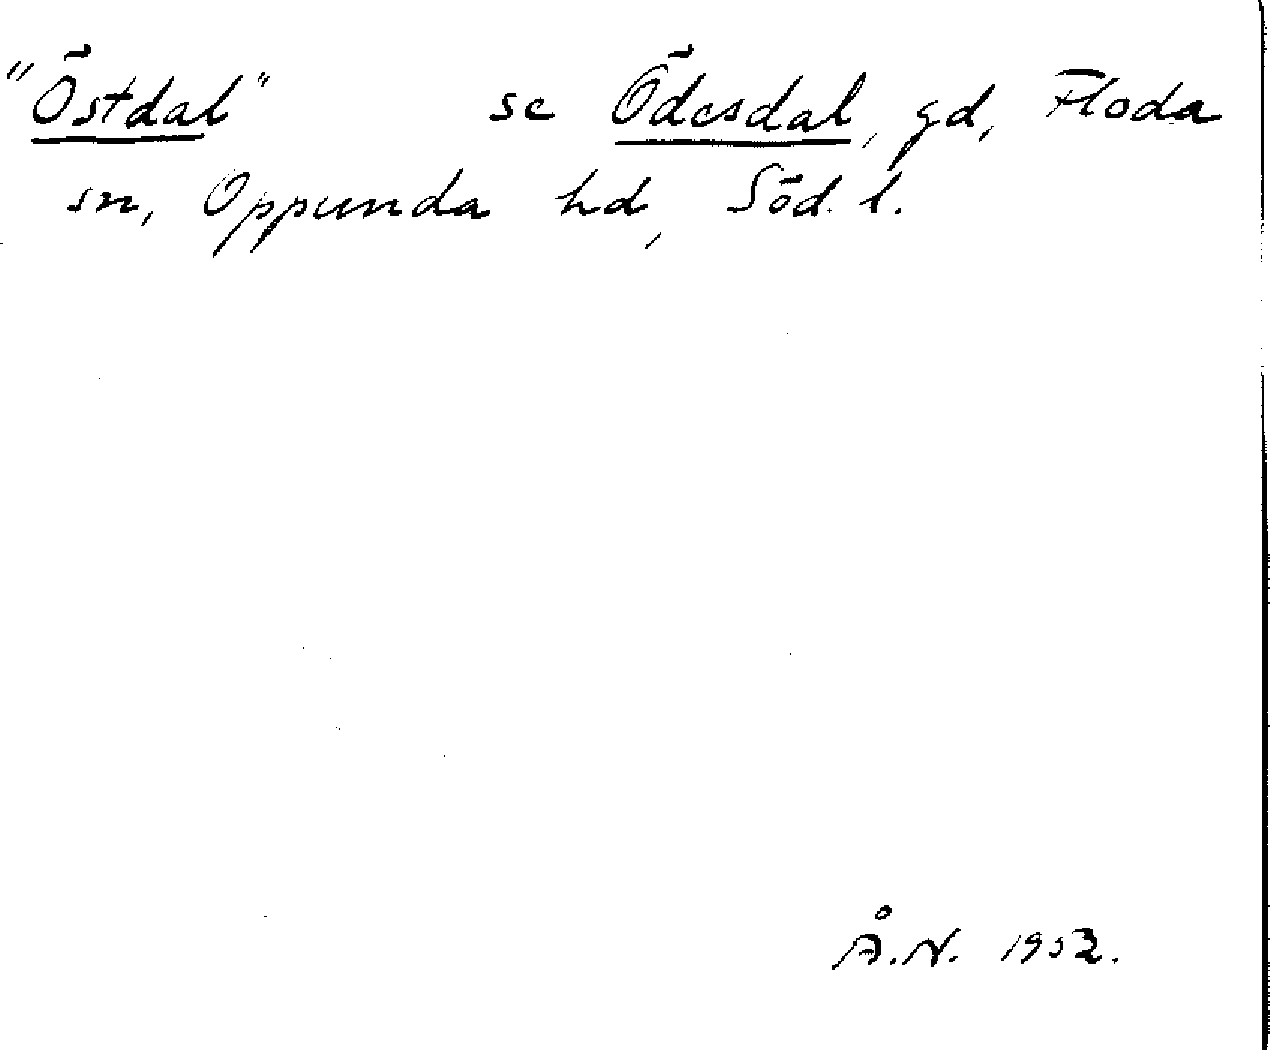 "Östdal" se Ödesdal, gd, Floda
sn, Oppunda hd, Söd. l.
Å.N. 1952.